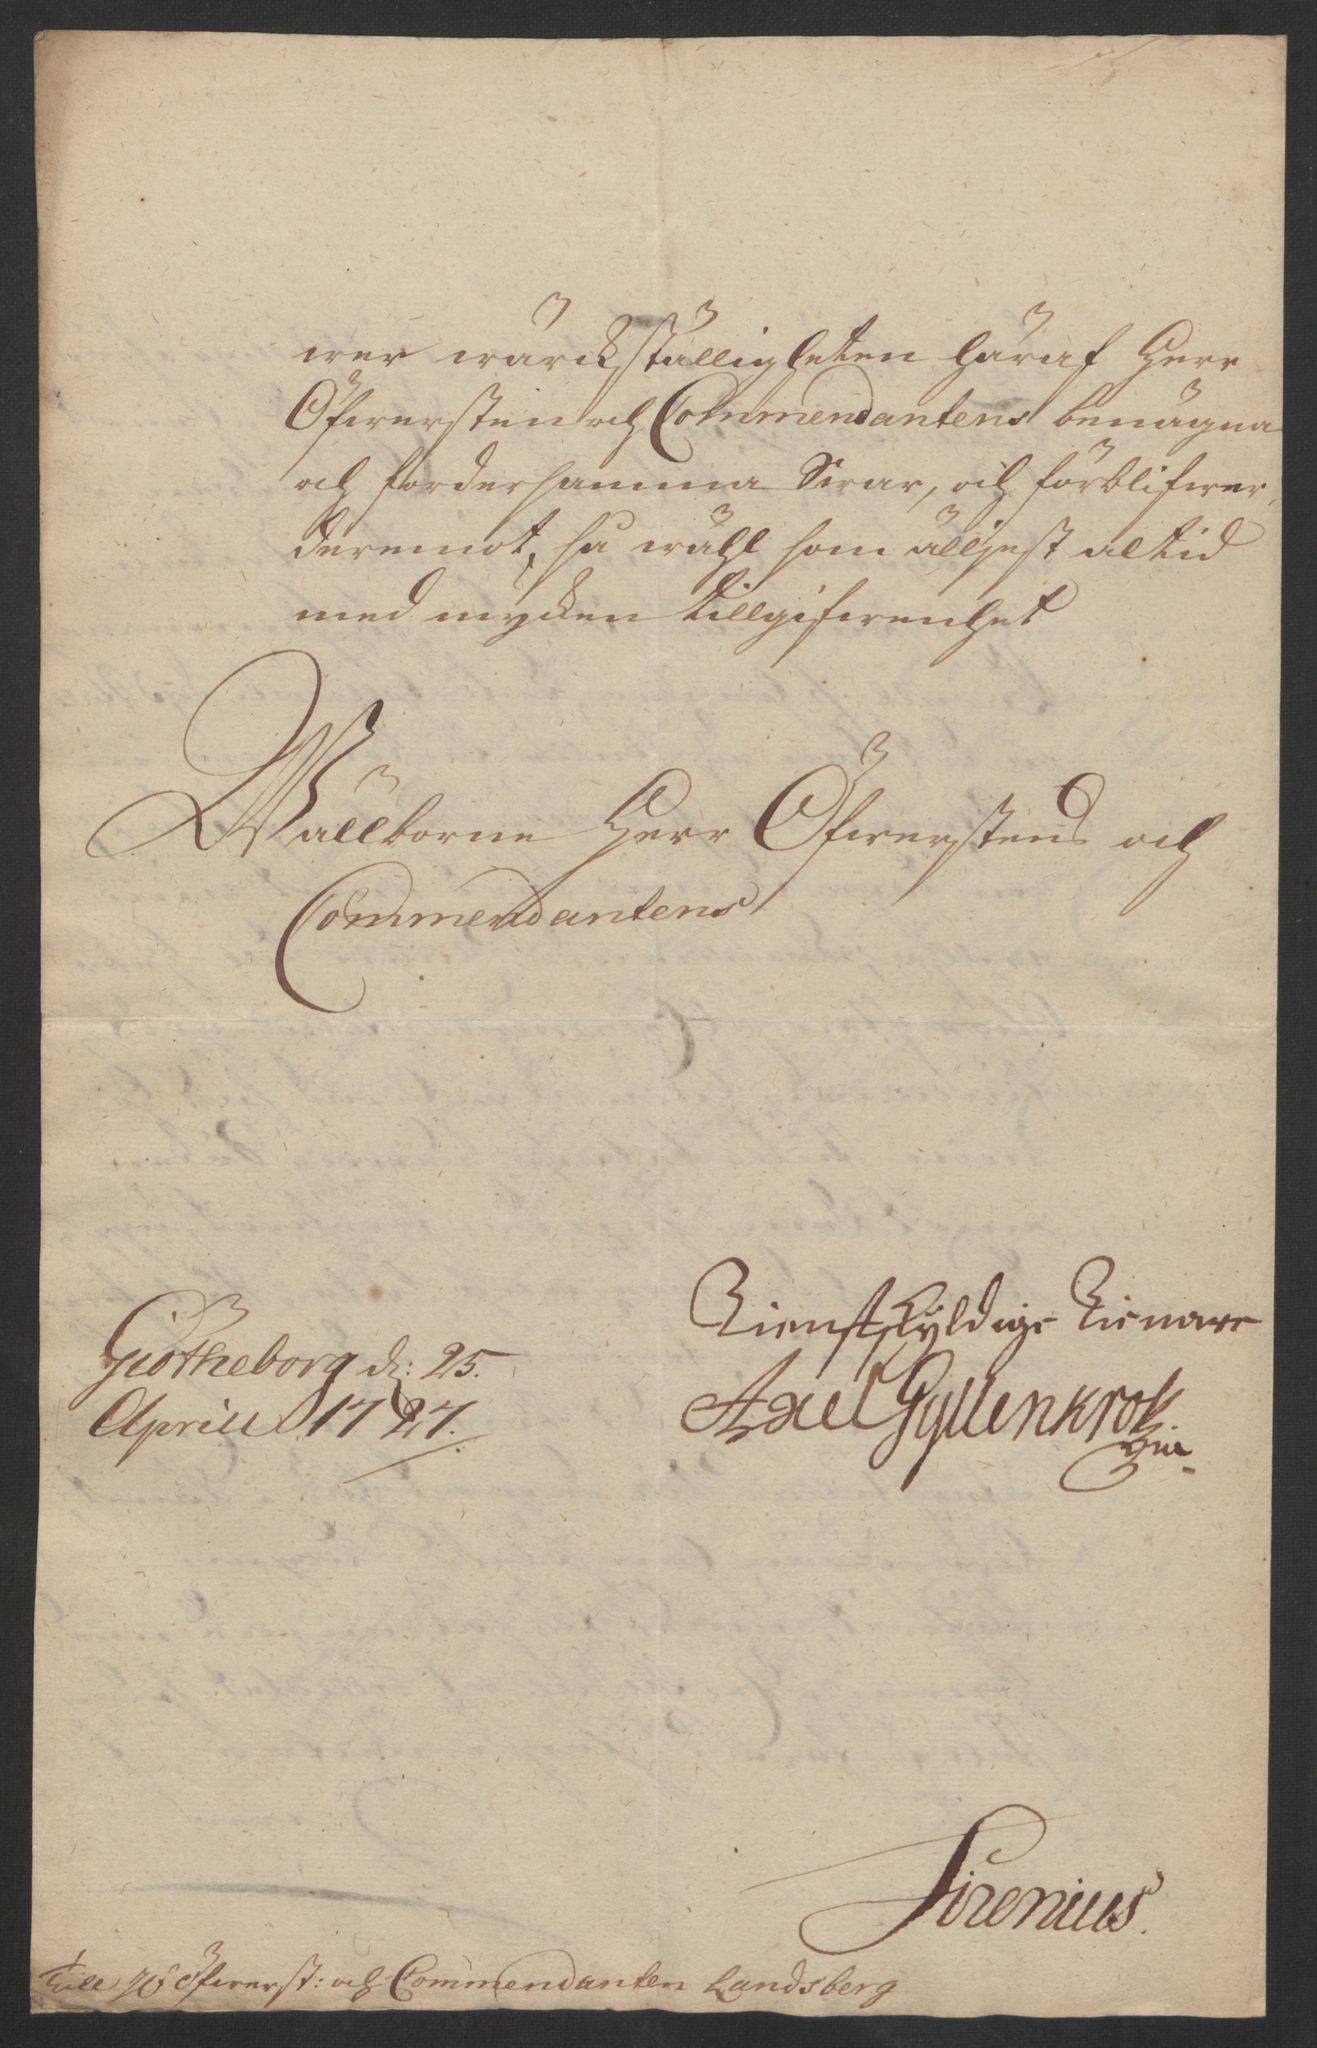 wer wärckställigheten häraf Herr
Öfwersten och Commendantens benägna
och fordersamma Swar, och förblifwer
deremot, så wähl som älljest altid
med mycken tillgifwenhet
Wällborne Herr Öfwerstens och
Commendantens
Giötheborg d: 25.
Aprill 1727.
Tienstskyldige Tienare
Axel Gyllenkrok
Sirenius.
Till H:r Öfwerst: och Commendanten Landsberg